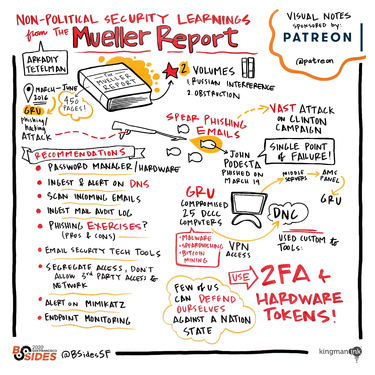 NON-POLITICAL SECURITY LEARNINGS
from THE Mueller Report
VISUAL NOTES
SPONSORED BY:
PATREON
@patreon
ARKADIY
TETELMAN
THE
MUELLER
REPORT
2 VOLUMES
1. RUSSIAN INTERFERENCE
2. OBSTRUCTION
MARCH - JUNE
2016
450
PAGES!
GRU
phishing/
hacking
ATTACK
SPEAR PHISHING
EMAILS
VAST ATTACK
ON CLINTON
CAMPAIGN
JOHN
PODESTA
PHISHED ON
MARCH 19
SINGLE POINT
OF FAILURE!
RECOMMENDATIONS
PASSWORD MANAGER/HARDWARE
INGEST & ALERT ON DNS
SCAN INCOMING EMAILS
INGEST MAIL AUDIT LOG
PHISHING EXERCISES?
(PROS & CONS)
EMAIL SECURITY TECH TOOLS
SEGREGATE ACCESS, DON'T
ALLOW 3RD PARTY ACCESS TO
NETWORK
ALERT ON MIMIKATZ
ENDPOINT MONITORING
GRU
COMPROMISED
25 DCCC
COMPUTERS
• MALWARE
• SPEARPHISHING
• BITCOIN
MINING
VPN
ACCESS
DNC
MIDDLE
SERVERS
AMC
PANEL
GRU
USED CUSTOM
TOOLS:
FEW OF US
CAN DEFEND
OURSELVES
AGAINST A NATION
STATE
USE 2FA &
HARDWARE
TOKENS!
BSIDES
2022
@BSidesSF
kingmanink